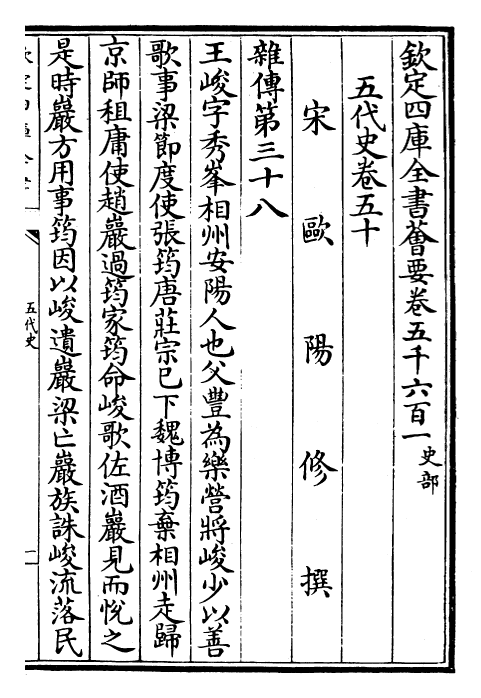 欽定四庫全書薈要卷五千六百一史部
五代史卷五十
宋歐陽修撰
雜傳第三十八
王峻字秀峯相州安陽人也父豐為樂營將峻少以善
歌事梁節度使張筠唐莊宗已下魏博筠棄相州走歸
京師租庸使趙巖過筠家筠命峻歌佐酒巖見而悅之
是時巖方用事筠因以峻遺巖梁亡巖族誅峻流落民
五代史
一